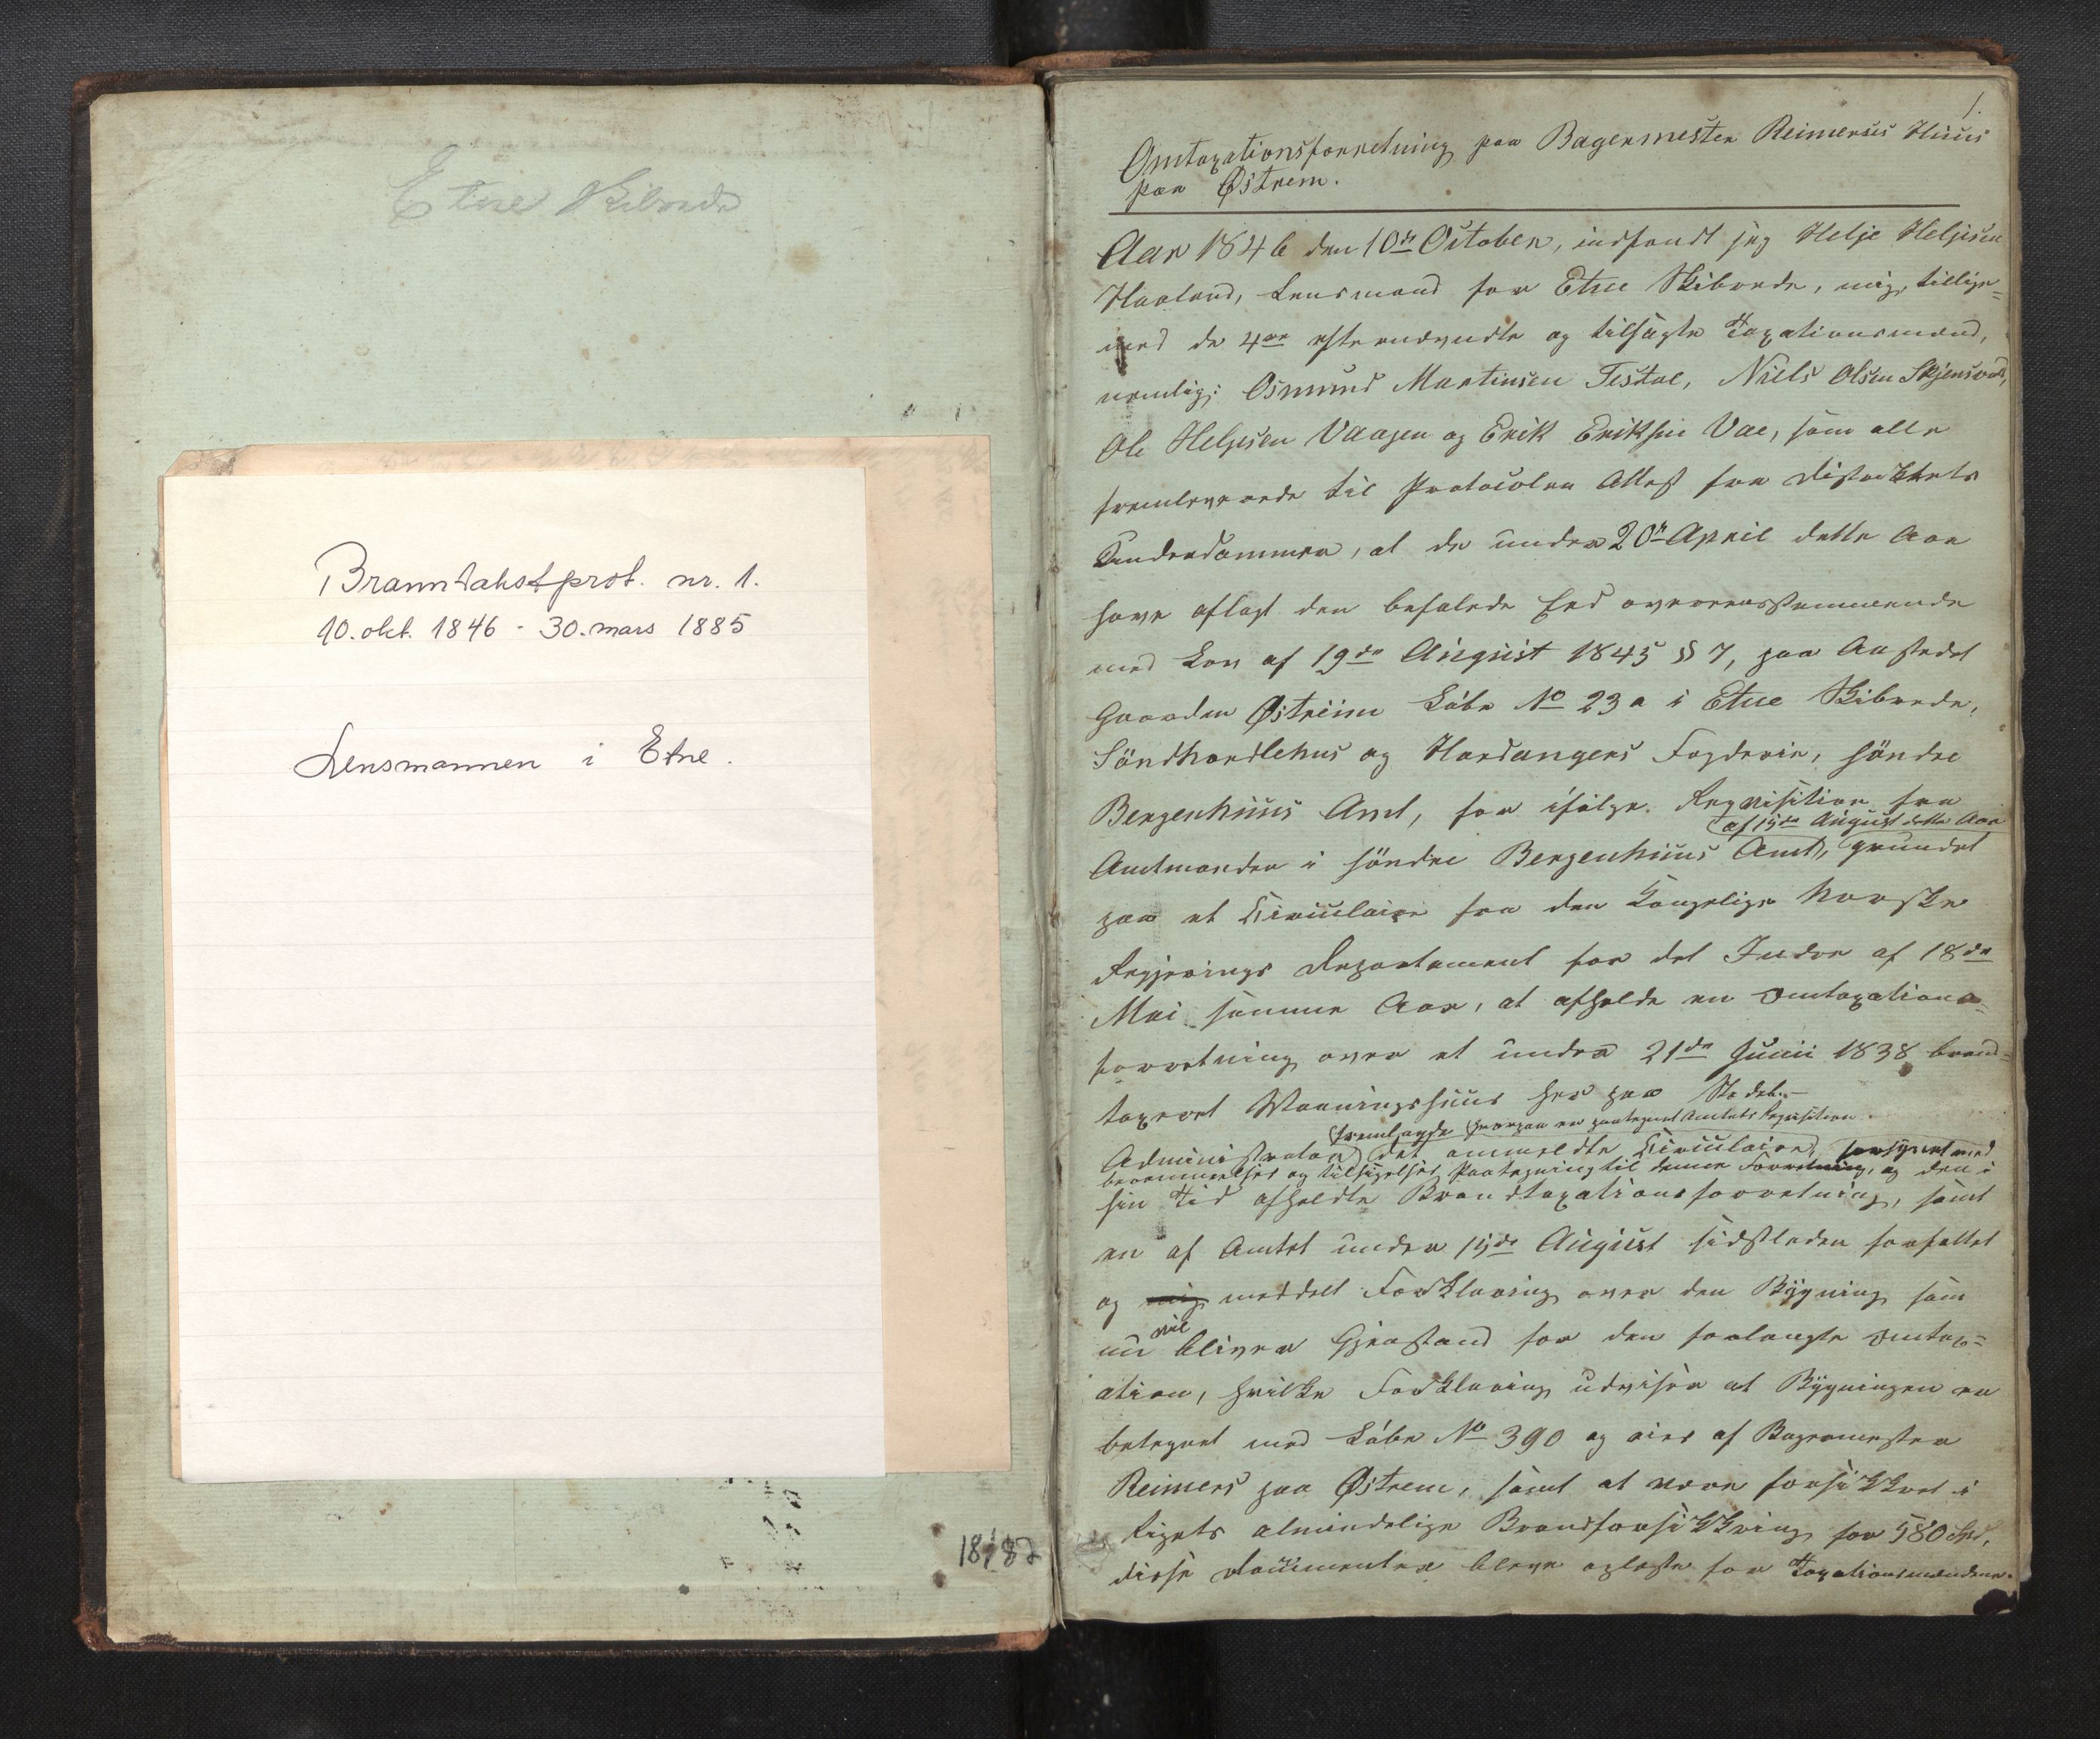 Etne Skibrede
Branntakstprot. nr. 1.
10. okt. 1846 - 30. mars 1885
Lensmannen i Etne.
18/87
1.
Omtaxationsforretning paa Bagermester Reimerses Huus
paa Østrem.
Aar 1846 den 10de October, indfandt jeg Helje Heljesen
Haaland, Lensmand for Etne Skibrede, mig, tillige=
med de 4re efternævndte og tilsagte Taxationsmænd,
nemlig: Osmund Martinsen Testal, Niels Olsen Skjensvold,
Ole Heljesen Vaagen og Erik Eriksen Vae, som alle
fremleverede til Protocolen Attest fra Districtets
Underdommer, at de under 20de April dette Aar
have aflagt den befalede Eed overeensstemmende
med Lov af 19de August 1845 § 7, paa Aastedet
Gaarden Østreim Løbe No 23 a i Etne Skibrede,
Søndhordlehns og Hardangers Fogderie, søndre
Bergenhuus Amt, for ifølge Reqvisition fra
Amtmanden i søndre Bergenhuus Amt, (af 15de August dette Aar grundet
paa et Circulaire fra den Kongelige Norske
Regjerings Departement for det Indre af 18de
Mai samme Aar, at afholde en Omtaxations=
forretning over et under 21de Junii 1838 brand=
taxeret Vaaningshuus her paa Stedet.-
(fremlagde hvorpaa er paategnet Amtets Reqvisition
Administrator det anmeldte Circulaire, forsynet med
berammelses og tilsigelses Paategning til denne Forretning, og den i
sin Tid afholdte Brandtaxationsforretning, samt
en af Amtet under 15de August sidstleden forfattet
og mig meddelt Forklaring over den Bygning som
nu vil bliver Gjenstand for den forlangte Omtax=
ation, hvilke Forklaring udviser at Bygningen er
betegnet med Løbe No 390 og eies af Bagermester
Reimers paa Østrem, samt at være forsikkret i
Rigets almindelige Brandforsikkring for 580 Spd,
disse Documenter bleve oplæste for Taxationsmændene.